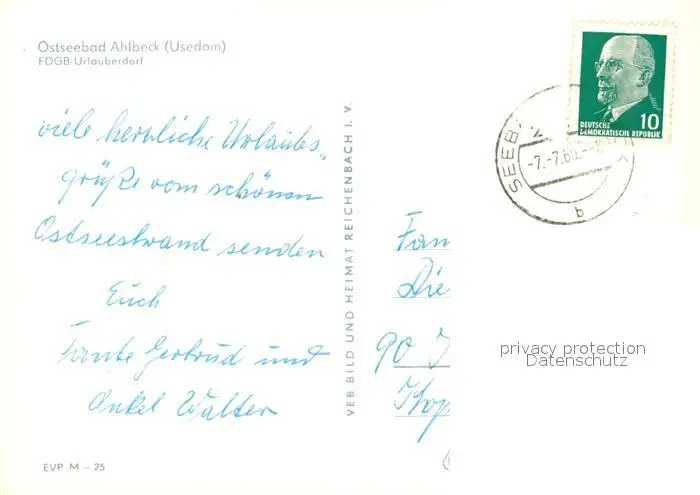 Ostseebad Ahlbeck (Usedom)
FDGB-Urlauberdorf
viele herzliche Urlaubs„
grüße vom schönen
Ostseestrand senden
Euch
Tante Gertrud und
Onkel Walter
EVP M – 25
VEB BILD UND HEIMAT REICHENBACH I. V.
10
DEUTSCHE
DEMOKRATISCHE REPUBLIK
SEEB
-7.-7.69.-
b
Fam
Die
90
privacy protection
Datenschutz